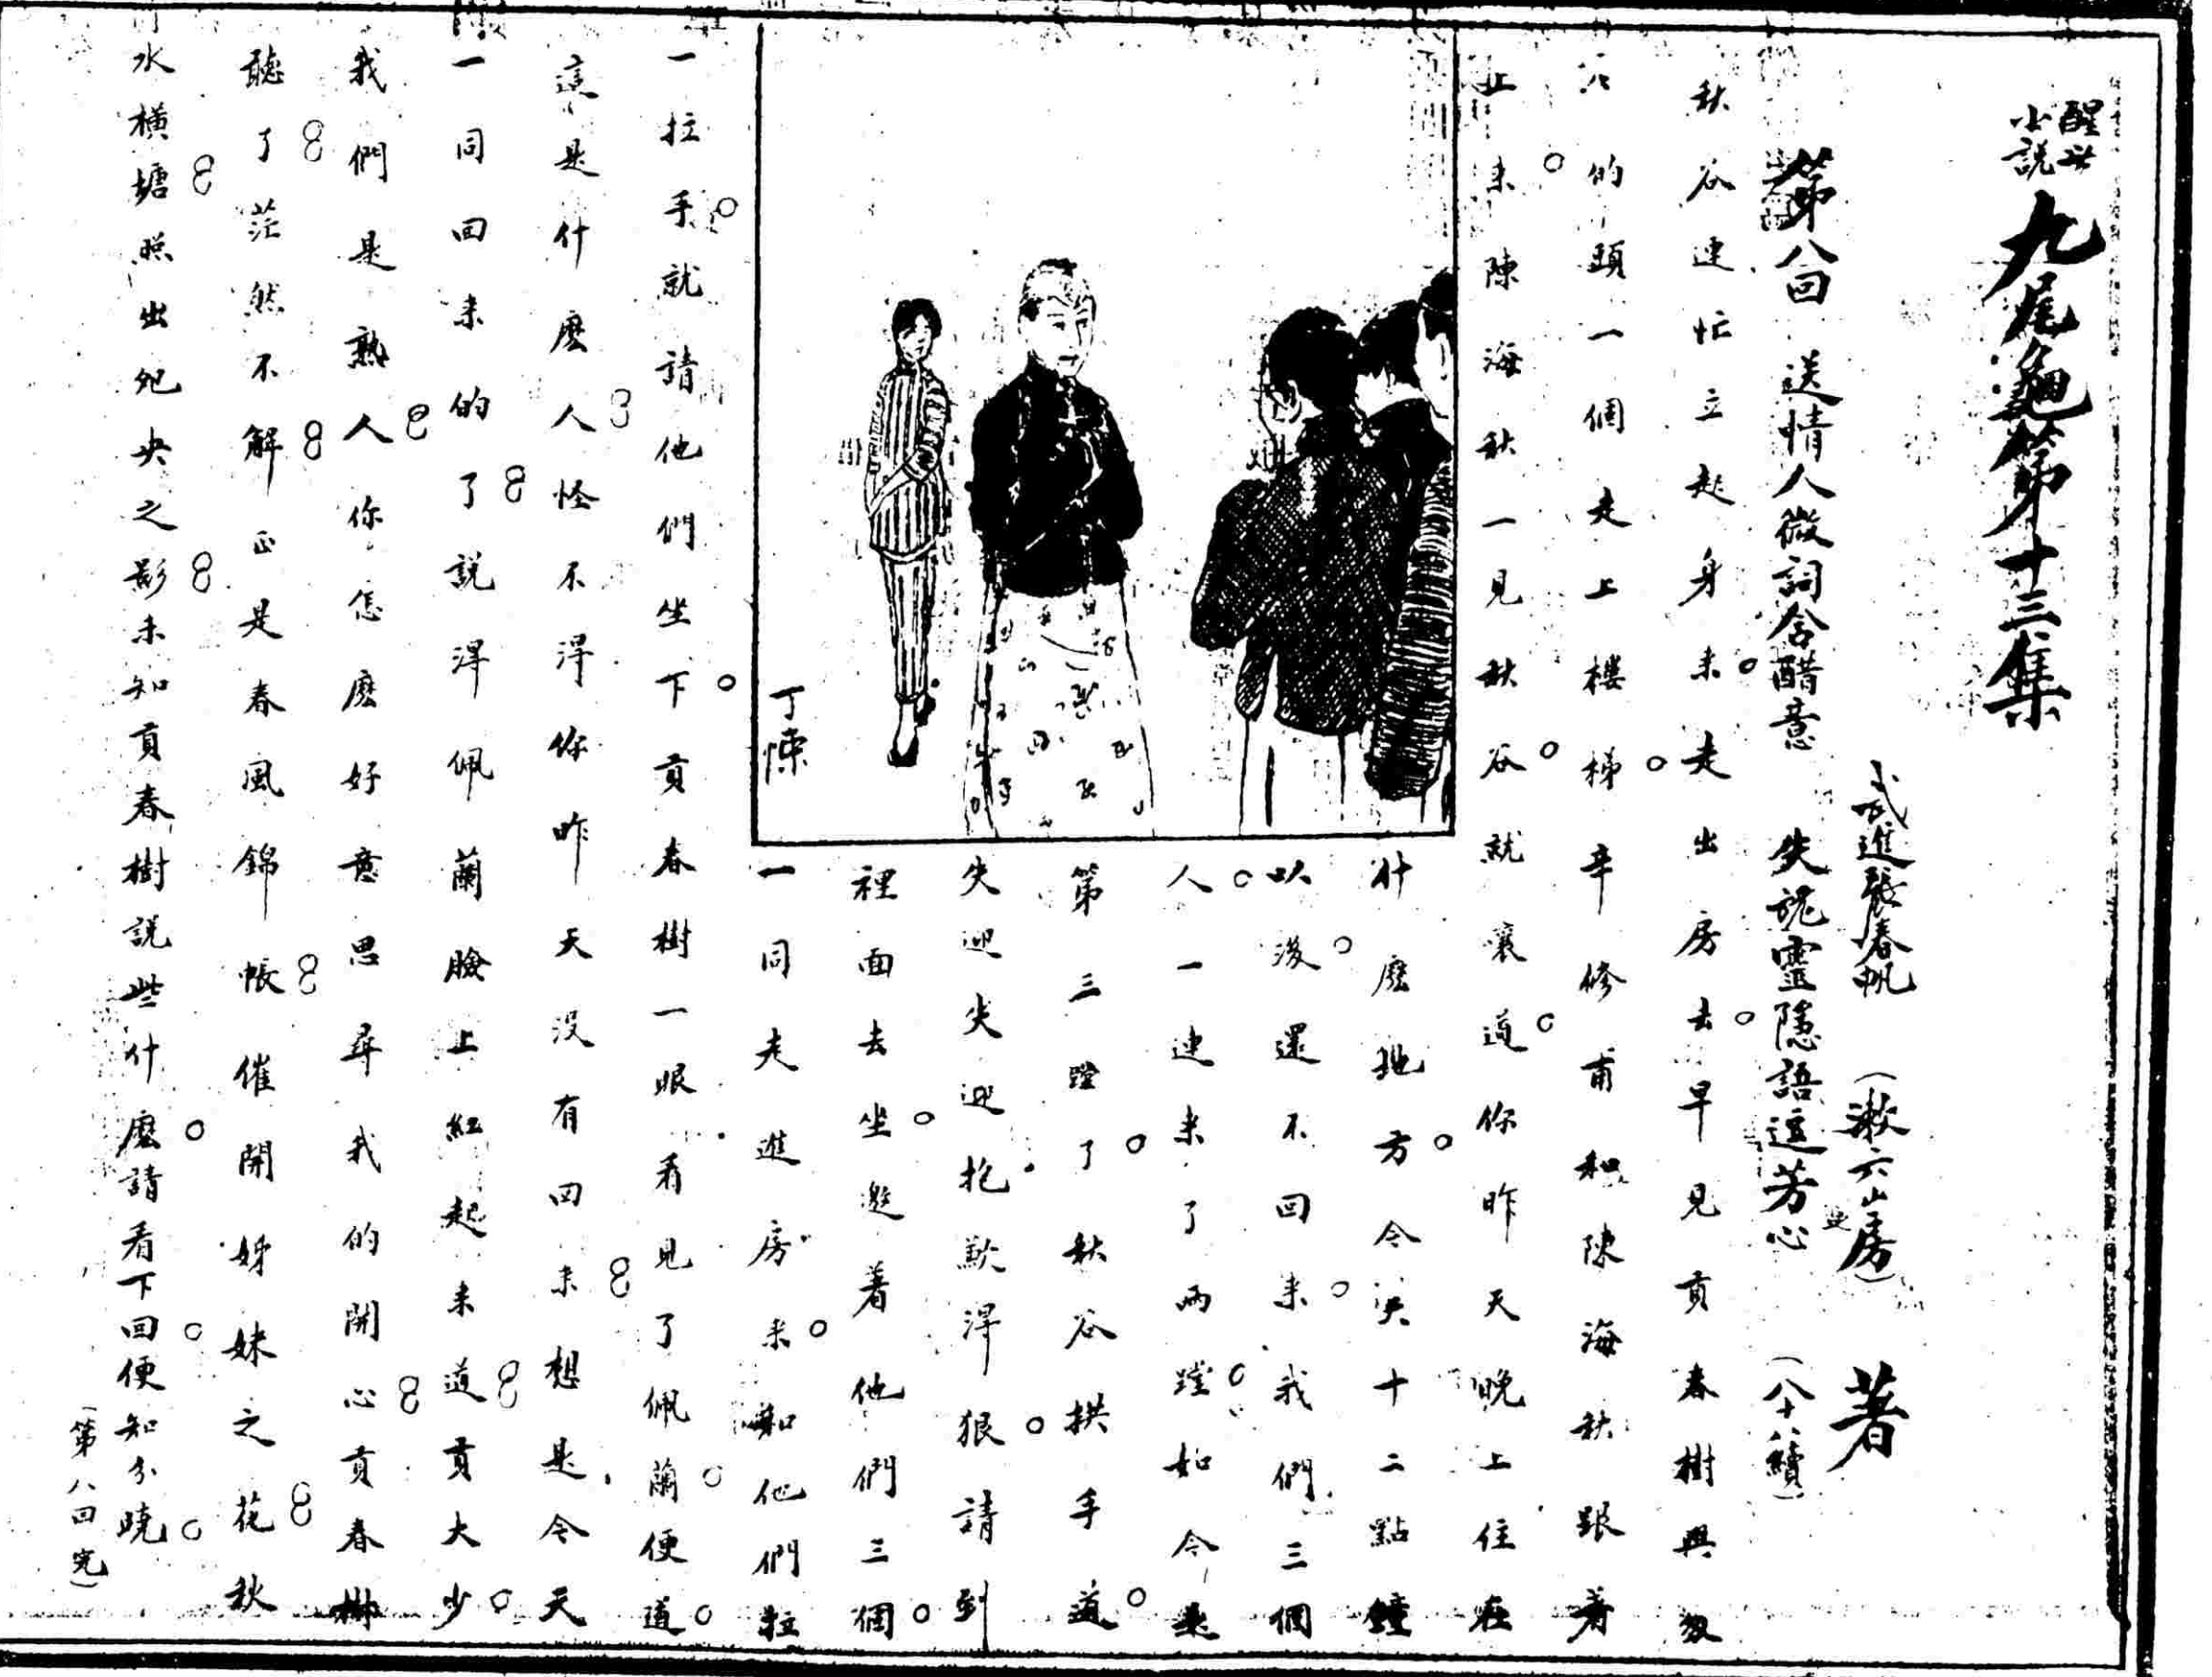 醒世小說
九尾龜第十三集
武進張春帆（漱六山房）著
第八回　送情人微詞含醋意　失魂靈隱語逗芳心　（八十八續）
秋谷連忙立起身來走出房去早見貢春樹興匆
的頭一個走上樓梯辛修甫和陳海秋跟著
上來陳海秋一見秋谷就嚷道你昨天晚上住在
什麼地方今天十二點鐘
以後還不回來我們三個
人一連來了兩蹚如今是
第三蹚了秋谷拱手道
失迎失迎抱歉得狠請到
裡面去坐邀着他們三個
一同走進房來和他們拉
一拉手就請他們坐下貢春樹一眼看見了佩蘭便道
這是什麼人怪不得你昨天沒有回來想是今天
一同回來的了說得佩蘭臉上紅起來道貢大少
我們是熟人你怎麼好意思尋我的開心貢春樹
聽了茫然不解正是春風錦帳催開姊妹之花秋
水橫塘照出鴛鴦之影未知貢春樹説些什麼請看下回便知分曉
（第八回完）
丁悚